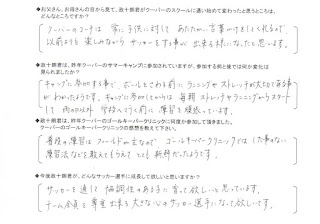 ◆お父さん、お母さんの目から見て、政十朗君がクーバーのスクールに通い始めて変わったと思うところは、
どんなところですか？
クーバーのコーチは 常に子供に対して あたたかい言葉かけをしてくれるので
以前よりも 楽しみながら サッカーをする事が 出来る様になったと思います。
◆政十朗君は、昨年クーバーのサマーキャンプに参加されていますが、参加する前と後では何か変化は
見られましたか？
キャンプに参加する事で、ボールをさわる前に ランニングや ストレッチが大切である事
がわかったようです。キャンプに参加してからは 毎朝 ストレッチ ランニングからスタート
して 雨の日以外 学校へ行く前に 練習を頑張っています。
◆政十朗君は、昨年クーバーのゴールキーパークリニックに何度か参加して頂きました。
クーバーのゴールキーパークリニックの感想を教えて下さい。
普段の練習は フィールドが主なので ゴールキーパークリニックでは
練習法などを教えてもらえて とても 新鮮だったようです。
◆今後政十朗君が、どんなサッカー選手に成長して欲しいと思いますか？
サッカーを通して 協調性のあるように育って欲しいと思っています。
チーム全員を 尊重出来る 大きな心のサッカー選手になって欲しいです。